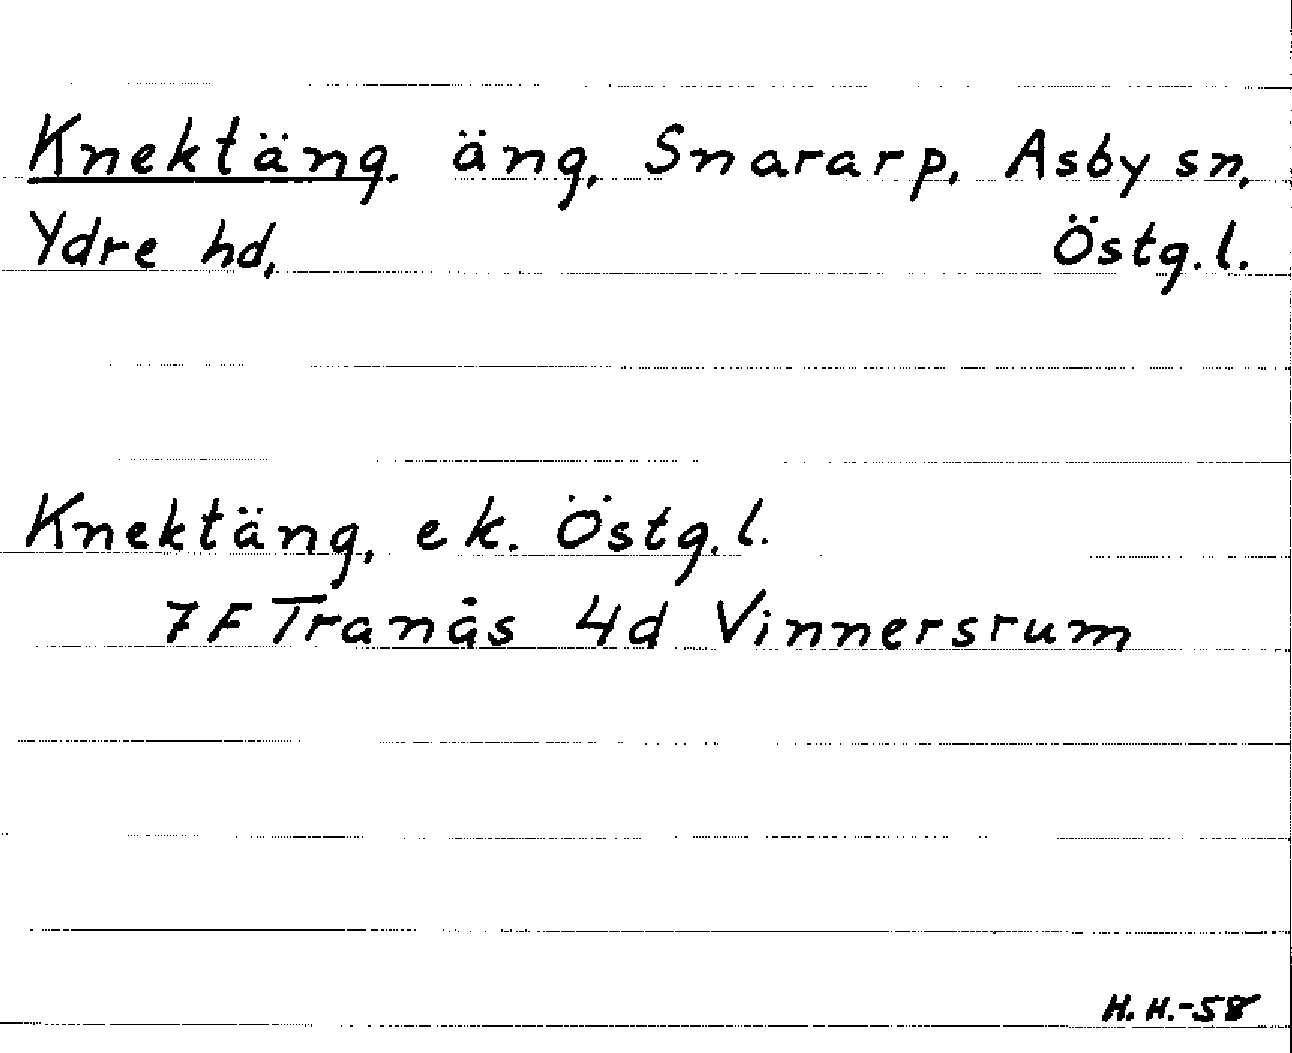 Knektäng. äng, Snararp, Asby sn,
Ydre hd, Östg.l.
Knektäng, ek. Östg.l.
7F Tranås 4d Vinnersrum
H.H.-58